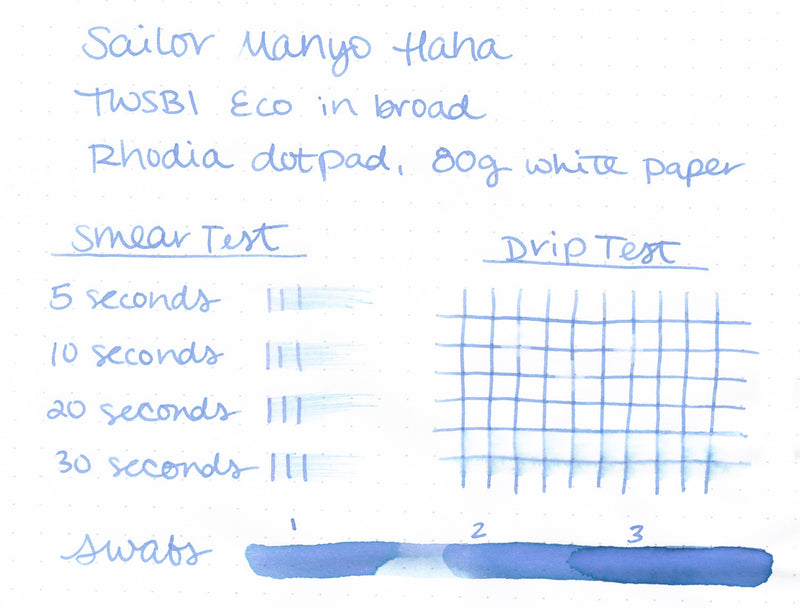 Sailor Manyo Haha
TWSBI Eco in broad
Rhodia dotpad, 80g white paper
Smear Test
5 seconds
10 seconds
20 seconds
30 seconds
Drip Test
Swabs
1 2 3